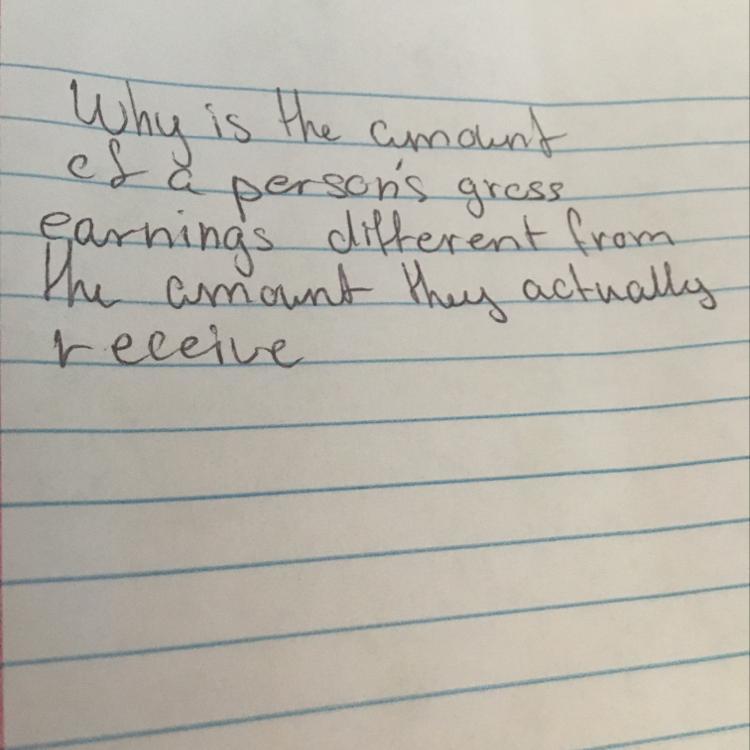 Why is the amount
of a person's gross
earnings different from
the amount they actually
receive